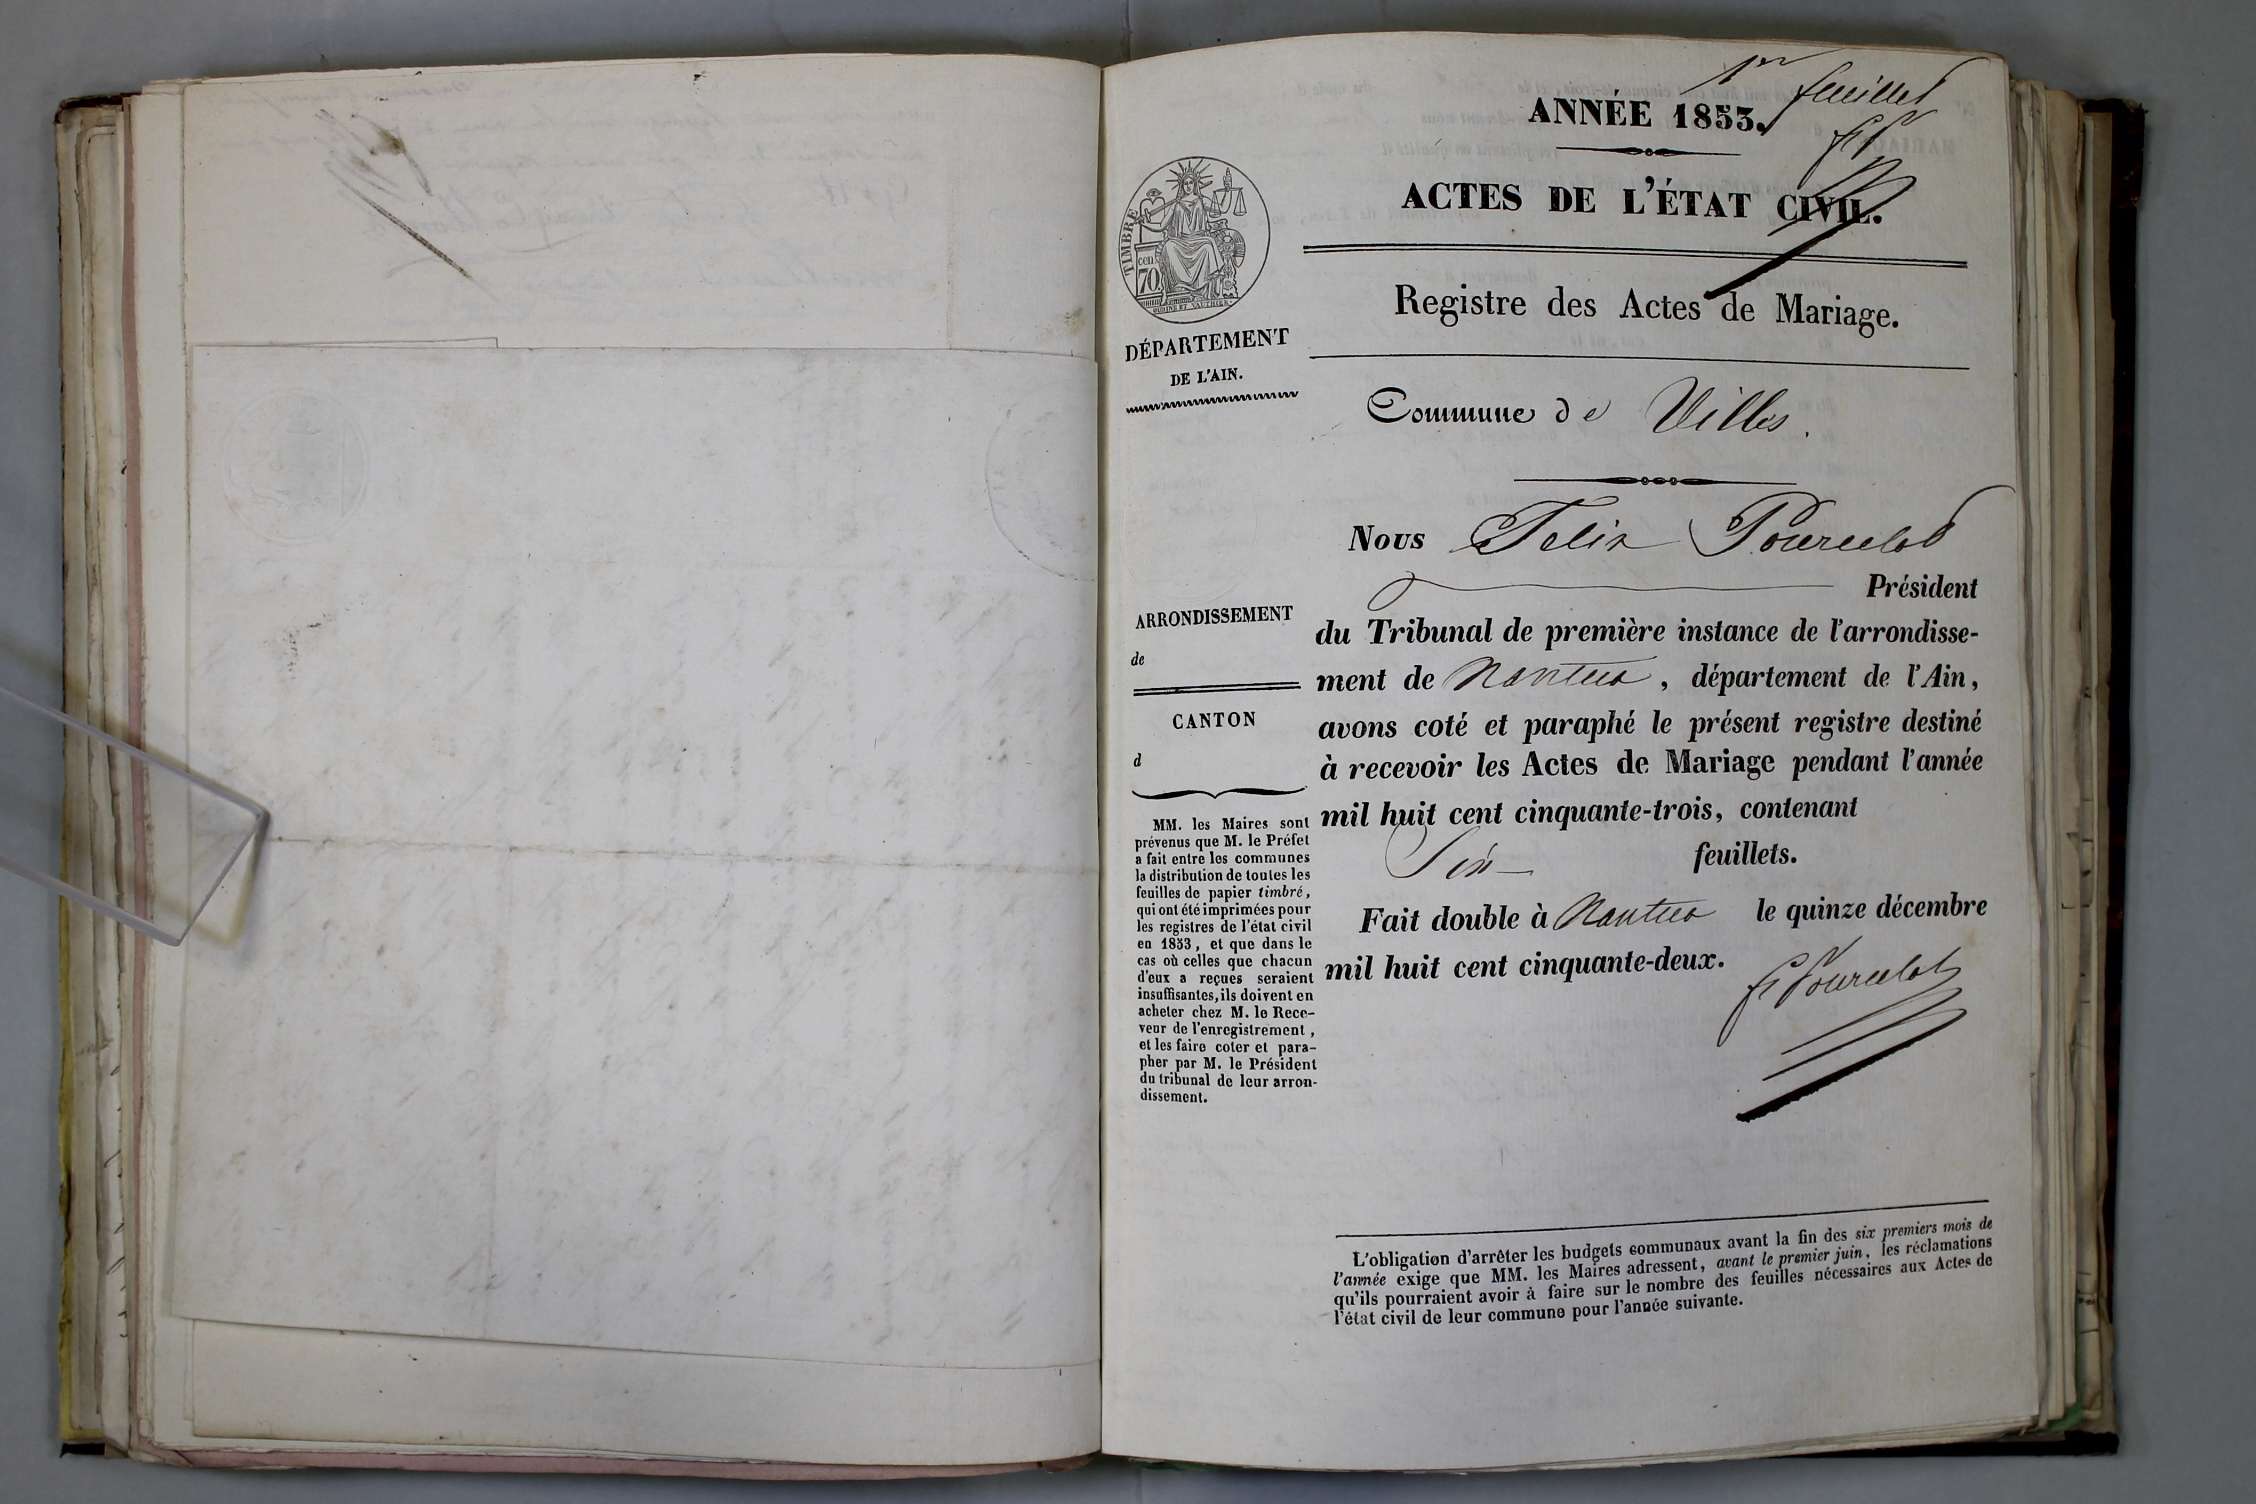 1er feuillet
ANNÉE 1853.
ACTES DE L'ÉTAT CIVIL.
Registre des Actes de Mariage.
TIMBRE
cen
70.
OUDINÉ ET VAUTHIER
DÉPARTEMENT
DE L'AIN.
Commune de Villes.
Nous Félix Pourcelot
Président
du Tribunal de première instance de l'arrondisse-
ment de Nantua, département de l'Ain,
avons coté et paraphé le présent registre destiné
à recevoir les Actes de Mariage pendant l'année
mil huit cent cinquante-trois, contenant
Six feuillets.
Fait double à Nantua le quinze décembre
mil huit cent cinquante-deux.
F Pourcelot
ARRONDISSEMENT
de
CANTON
d
MM. les Maires sont
prévenus que M. le Préfet
a fait entre les communes
la distribution de toutes les
feuilles de papier timbré,
qui ont été imprimées pour
les registres de l'état civil
en 1853, et que dans le
cas où celles que chacun
d'eux a reçues seraient
insuffisantes, ils doivent en
acheter chez M. le Rece-
veur de l'enregistrement,
et les faire coter et para-
pher par M. le Président
du tribunal de leur arron-
dissement.
L'obligation d'arrêter les budgets communaux avant la fin des six premiers mois de
l'année exige que MM. les Maires adressent, avant le premier juin, les réclamations
qu'ils pourraient avoir à faire sur le nombre des feuilles nécessaires aux Actes de
l'état civil de leur commune pour l'année suivante.